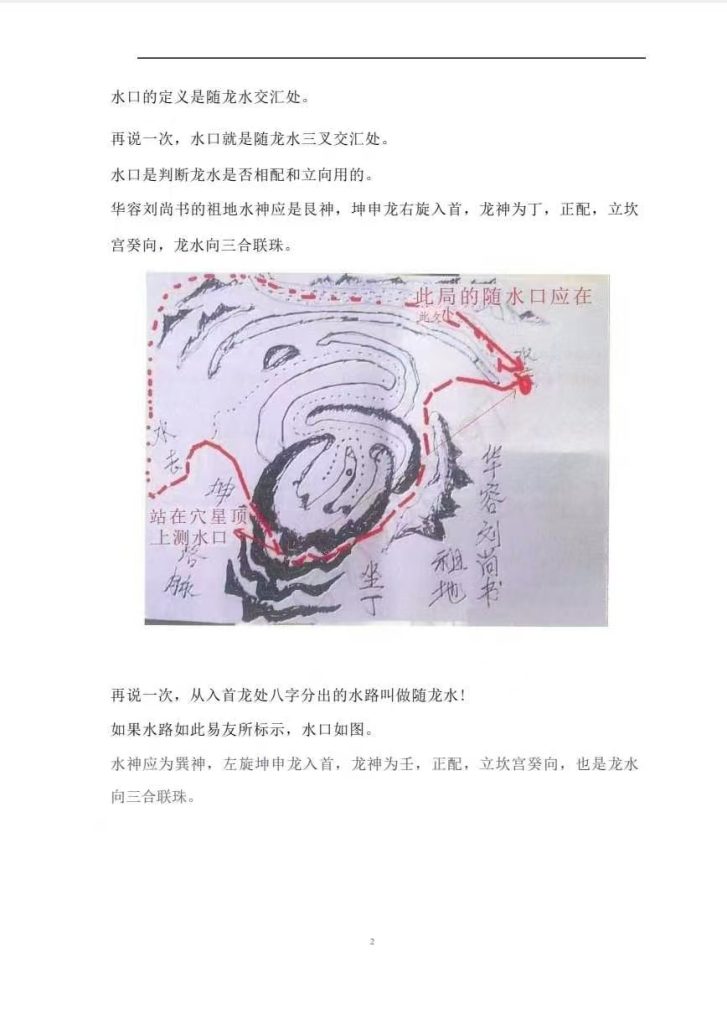 水口的定义是随龙水交汇处。
再说一次，水口就是随龙水三叉交汇处。
水口是判断龙水是否相配和立向用的。
华容刘尚书的祖地水神应是艮神，坤申龙右旋入首，龙神为丁，正配，立坎
宫癸向，龙水向三合联珠。
此局的随水口应在
此
水去
坤
站在穴星顶
上测水口
脉
坐丁
华容刘尚书
祖地
再说一次，从入首龙处八字分出的水路叫做随龙水!
如果水路如此易友所标示，水口如图。
水神应为巽神，左旋坤申龙入首，龙神为壬，正配，立坎宫癸向，也是龙水
向三合联珠。
2